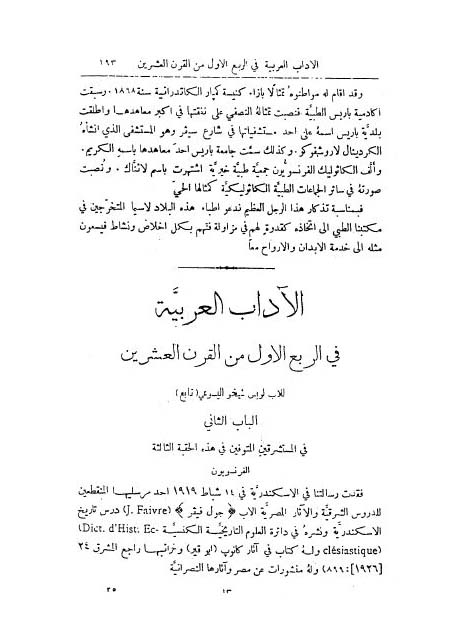 الآداب العربية في الربع الاول من القرن العشرين ١٩٣
وقد اقام له مواطنوهُ تمثالًا بازاء كنيسة كمپار الكاتدرائية سنة ١٨٦٨. وسبقت
اكادمية باريس الطبيَّة فنصبت تمثالهُ النصفي على نفقتها في اكبر معاهدها واطلقت
بلديَّة باريس اسمهُ على احد مستشفياتها في شارع سيڤر وهو المستشفى الذي انشأهُ
الكردينال لاروشفوكو. وكذلك سمَّت جامعة باريس احد معاهدها باسمهِ الكريم.
وألَّف الكاثوليك الفرنسويُّون جمعيَّة طبيَّة خيريَّة اشتهرت باسم لانَّاك. ونُصبت
صورتهُ في سائر الجماعات الطبيَّة الكاثوليكيَّة كمثالها الحيّ
فبمناسبة تذكار هذا الرجل العظيم ندعو اطباء هذه البلاد لاسيا المتخرّجين في
مكتبنا الطبي الى اتّخاذه كقدوةٍ لهم في مزاولة فنهم بكل اخلاص ونشاط فيسعون
مثله الى خدمة الابدان والارواح معاً
الآداب العربيَّة
في الربع الاول من القرن العشرين
للاب لويس شيخو اليسوعي (تابع)
الباب الثاني
في المستشرقين المتوفين في هذه الحقبة الثالثة
الفرنسويون
فقدت رسالتنا في الاسكندريَّة في ١٤ شباط ١٩١٩ احد مرسليها المنقطعين
للدروس الشرقيَّة والآثار المصريَّة الاب ﴿ جول فيڤر ﴾ (J. Faivre) درس تاريخ
الاسكندريَّة ونشرهُ في دائرة العلوم التاريخيَّة الكنسيَّة (Dict. d'Hist. Ec-
clésiastique) ولهُ كتاب في آثار كانوپ (ابو قير) وخرائبها راجع المشرق ٢٤
[١٩٢٦]: ٨٦٦) ولهُ منشورات عن مصر وآثارها النصرانيَّة
١٣ ٢٥